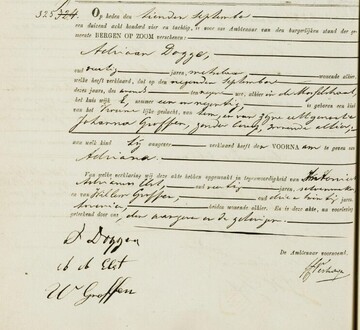 325. 324. Op heden den tienden September
een duizend acht honderd vier en tachtig, is voor ons Ambtenaar van den burgerlijken stand der ge-
meente BERGEN OP ZOOM verschenen:
Adriaan Doggen,
oud veertig jaren, metselaar wonende alhier,
welke heeft verklaard, dat op den negenden September
dezes jaars, des avonds ten negen ure, alhier in de
het huis wijk nummer een en negentig, is geboren een kind
van het vrouwelijke geslacht, van hem, en van zijne echtgenoote
Johanna Groffen, zonder beroep, wonende alhier,
aan welk kind hij aangever verklaard heeft den VOORNAAM te geven van
Adriana.
Van welke verklaring wij deze akte hebben opgemaakt in tegenwoordigheid van
Adrianus Elst, oud veertig jaren, schoenmaker
en Willem Groffen, oud drie en jaren,
beiden wonende alhier. En is deze akte, na voorlezing
geteekend door ons, den aangever en de getuigen.
A Doggen
Elst
W Groffen
De Ambtenaar voornoemd,